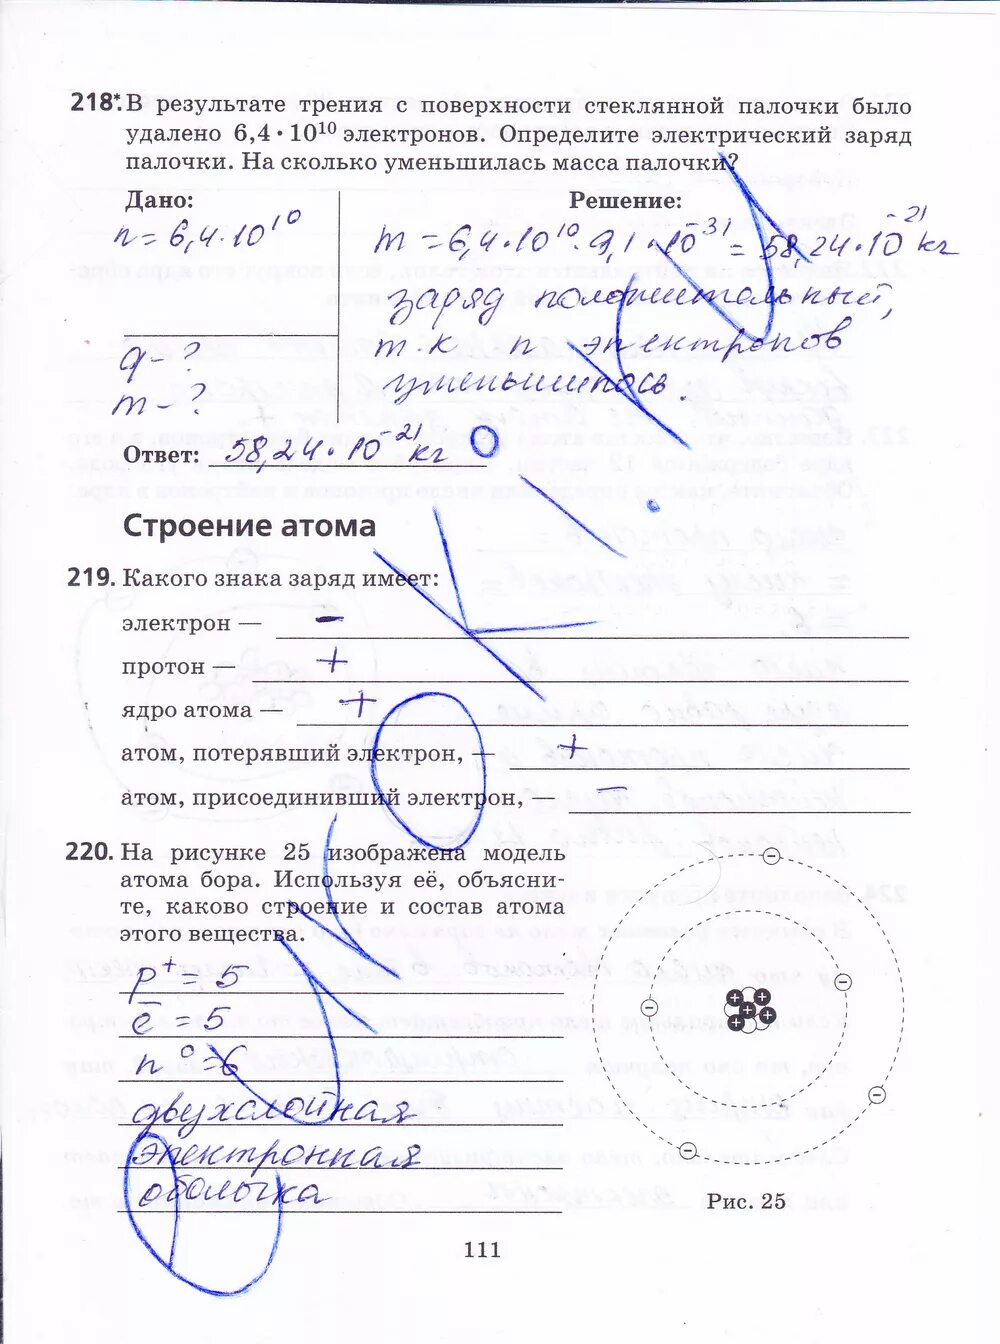 218*. В результате трения с поверхности стеклянной палочки было
удалено 6,4 • 10¹⁰ электронов. Определите электрический заряд
палочки. На сколько уменьшилась масса палочки?
Дано:
n = 6,4 · 10¹⁰
q - ?
m - ?
Решение:
m = 6,4 · 10¹⁰ · 9,1 · 10⁻³¹ = 58,24 · 10⁻²¹ кг
заряд положительный,
т.к n электронов
уменьшилось.
Ответ: 58,24 · 10⁻²¹ кг
Строение атома
219. Какого знака заряд имеет:
электрон — −
протон — +
ядро атома — +
атом, потерявший электрон, — +
атом, присоединивший электрон, — −
220. На рисунке 25 изображена модель
атома бора. Используя её, объясни-
те, каково строение и состав атома
этого вещества.
p⁺ = 5
e⁻ = 5
n⁰ = 6
двухслойная
электронная
оболочка
Рис. 25
111